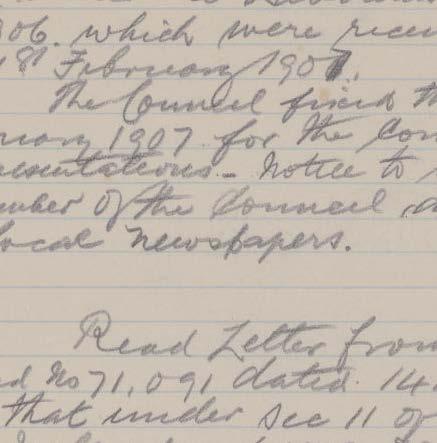 906. which were recei
1st February 1907.
The Council fixed th
ruary 1907 for the Con
resentations - Notice to
ember of the Council a
local Newspapers.
Read Letter from
d No 71,091 dated 14
that under Sec 11 of